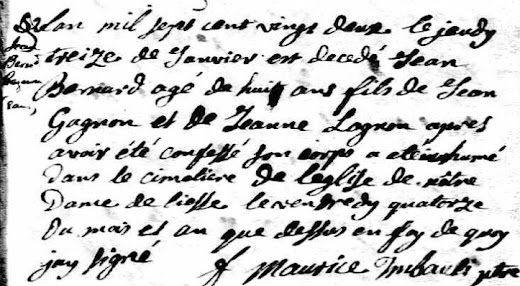 Lan mil sept cent vingt deux le jeudy
treize de Janvier est decedé Jean
Bernard agé de huit ans fils de Jean
Gagnon et de Jeanne Lognon apres
avoir été confessé son corps a eté inhumé
dans le cimetiere de leglise de notre
Dame de liesse le vendredy quatorze
du mois et an que dessus en foy de quoy
jay signé
f Maurice Imbault ptre